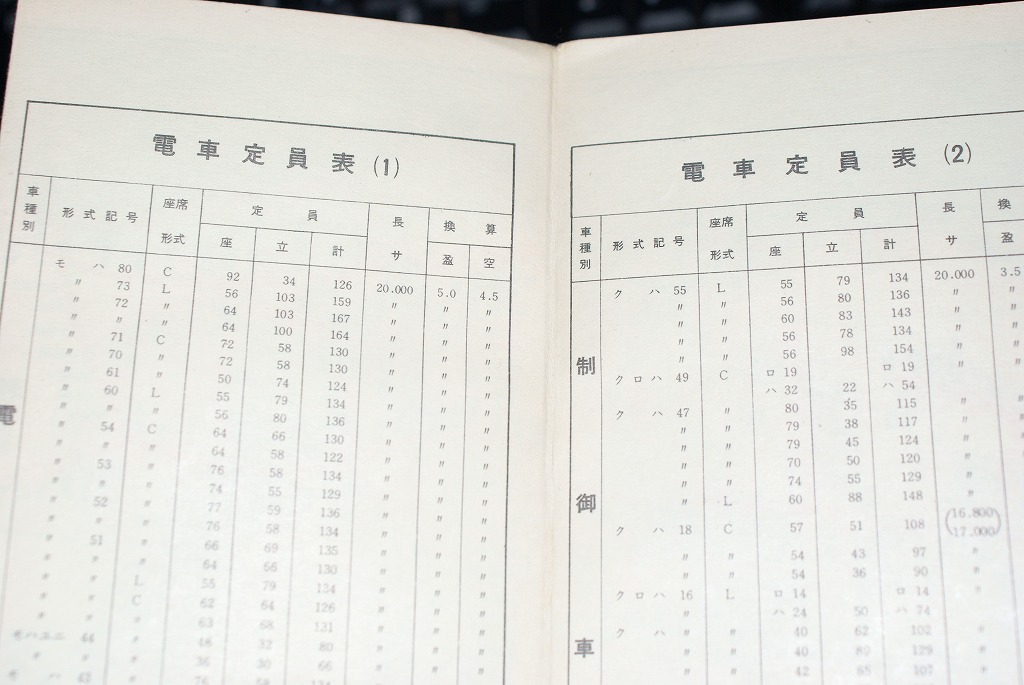 電車定員表(1)
車種別 形式記号 座席形式 定員 長サ 換算
座 立 計 盈 空
電
モハ 80 C 92 34 126 20.000 5.0 4.5
〃 73 L 56 103 159 〃 〃 〃
〃 72 〃 64 103 167 〃 〃 〃
〃 〃 〃 64 100 164 〃 〃 〃
〃 71 C 72 58 130 〃 〃 〃
〃 70 〃 72 58 130 〃 〃 〃
〃 61 〃 50 74 124 〃 〃 〃
〃 60 L 55 79 134 〃 〃 〃
〃 〃 〃 56 80 136 〃 〃 〃
〃 54 C 64 66 130 〃 〃 〃
〃 〃 〃 64 58 122 〃 〃 〃
〃 53 〃 76 58 134 〃 〃 〃
〃 〃 〃 74 55 129 〃 〃 〃
〃 52 〃 77 59 136 〃 〃 〃
〃 〃 〃 76 58 134 〃 〃 〃
〃 51 〃 66 69 135 〃 〃 〃
〃 〃 〃 64 66 130 〃 〃 〃
〃 〃 L 55 79 134 〃 〃 〃
〃 〃 C 62 64 126 〃 〃 〃
〃 〃 〃 63 68 131 〃 〃 〃
モハユニ 44 〃 48 32 80 〃 〃 〃
〃 〃 〃 36 30 66 〃 〃 〃
モハ 43 〃 76 58 134
電車定員表(2)
車種別 形式記号 座席形式 定員 長サ 換
座 立 計 盈
制御車
クハ 55 L 55 79 134 20.000 3.5
〃 〃 56 80 136 〃 〃
〃 〃 60 83 143 〃 〃
〃 〃 56 78 134 〃 〃
〃 〃 56 98 154 〃 〃
クロハ 49 C ロ 19 ロ 19 〃 〃
ハ 32 22 ハ 54
クハ 47 〃 80 35 115 〃
〃 〃 79 38 117 〃
〃 〃 79 45 124 〃
〃 〃 70 50 120 〃
〃 〃 74 55 129 〃
〃 L 60 88 148 〃
クハ 18 C 57 51 108 (16.800 17.000)
〃 〃 54 43 97 〃
〃 〃 54 36 90 〃
クロハ 16 L ロ 14 ロ 14 〃
ハ 24 50 ハ 74
クハ 〃 〃 40 62 102 〃
〃 〃 40 89 129 〃
〃 〃 42 65 107 〃